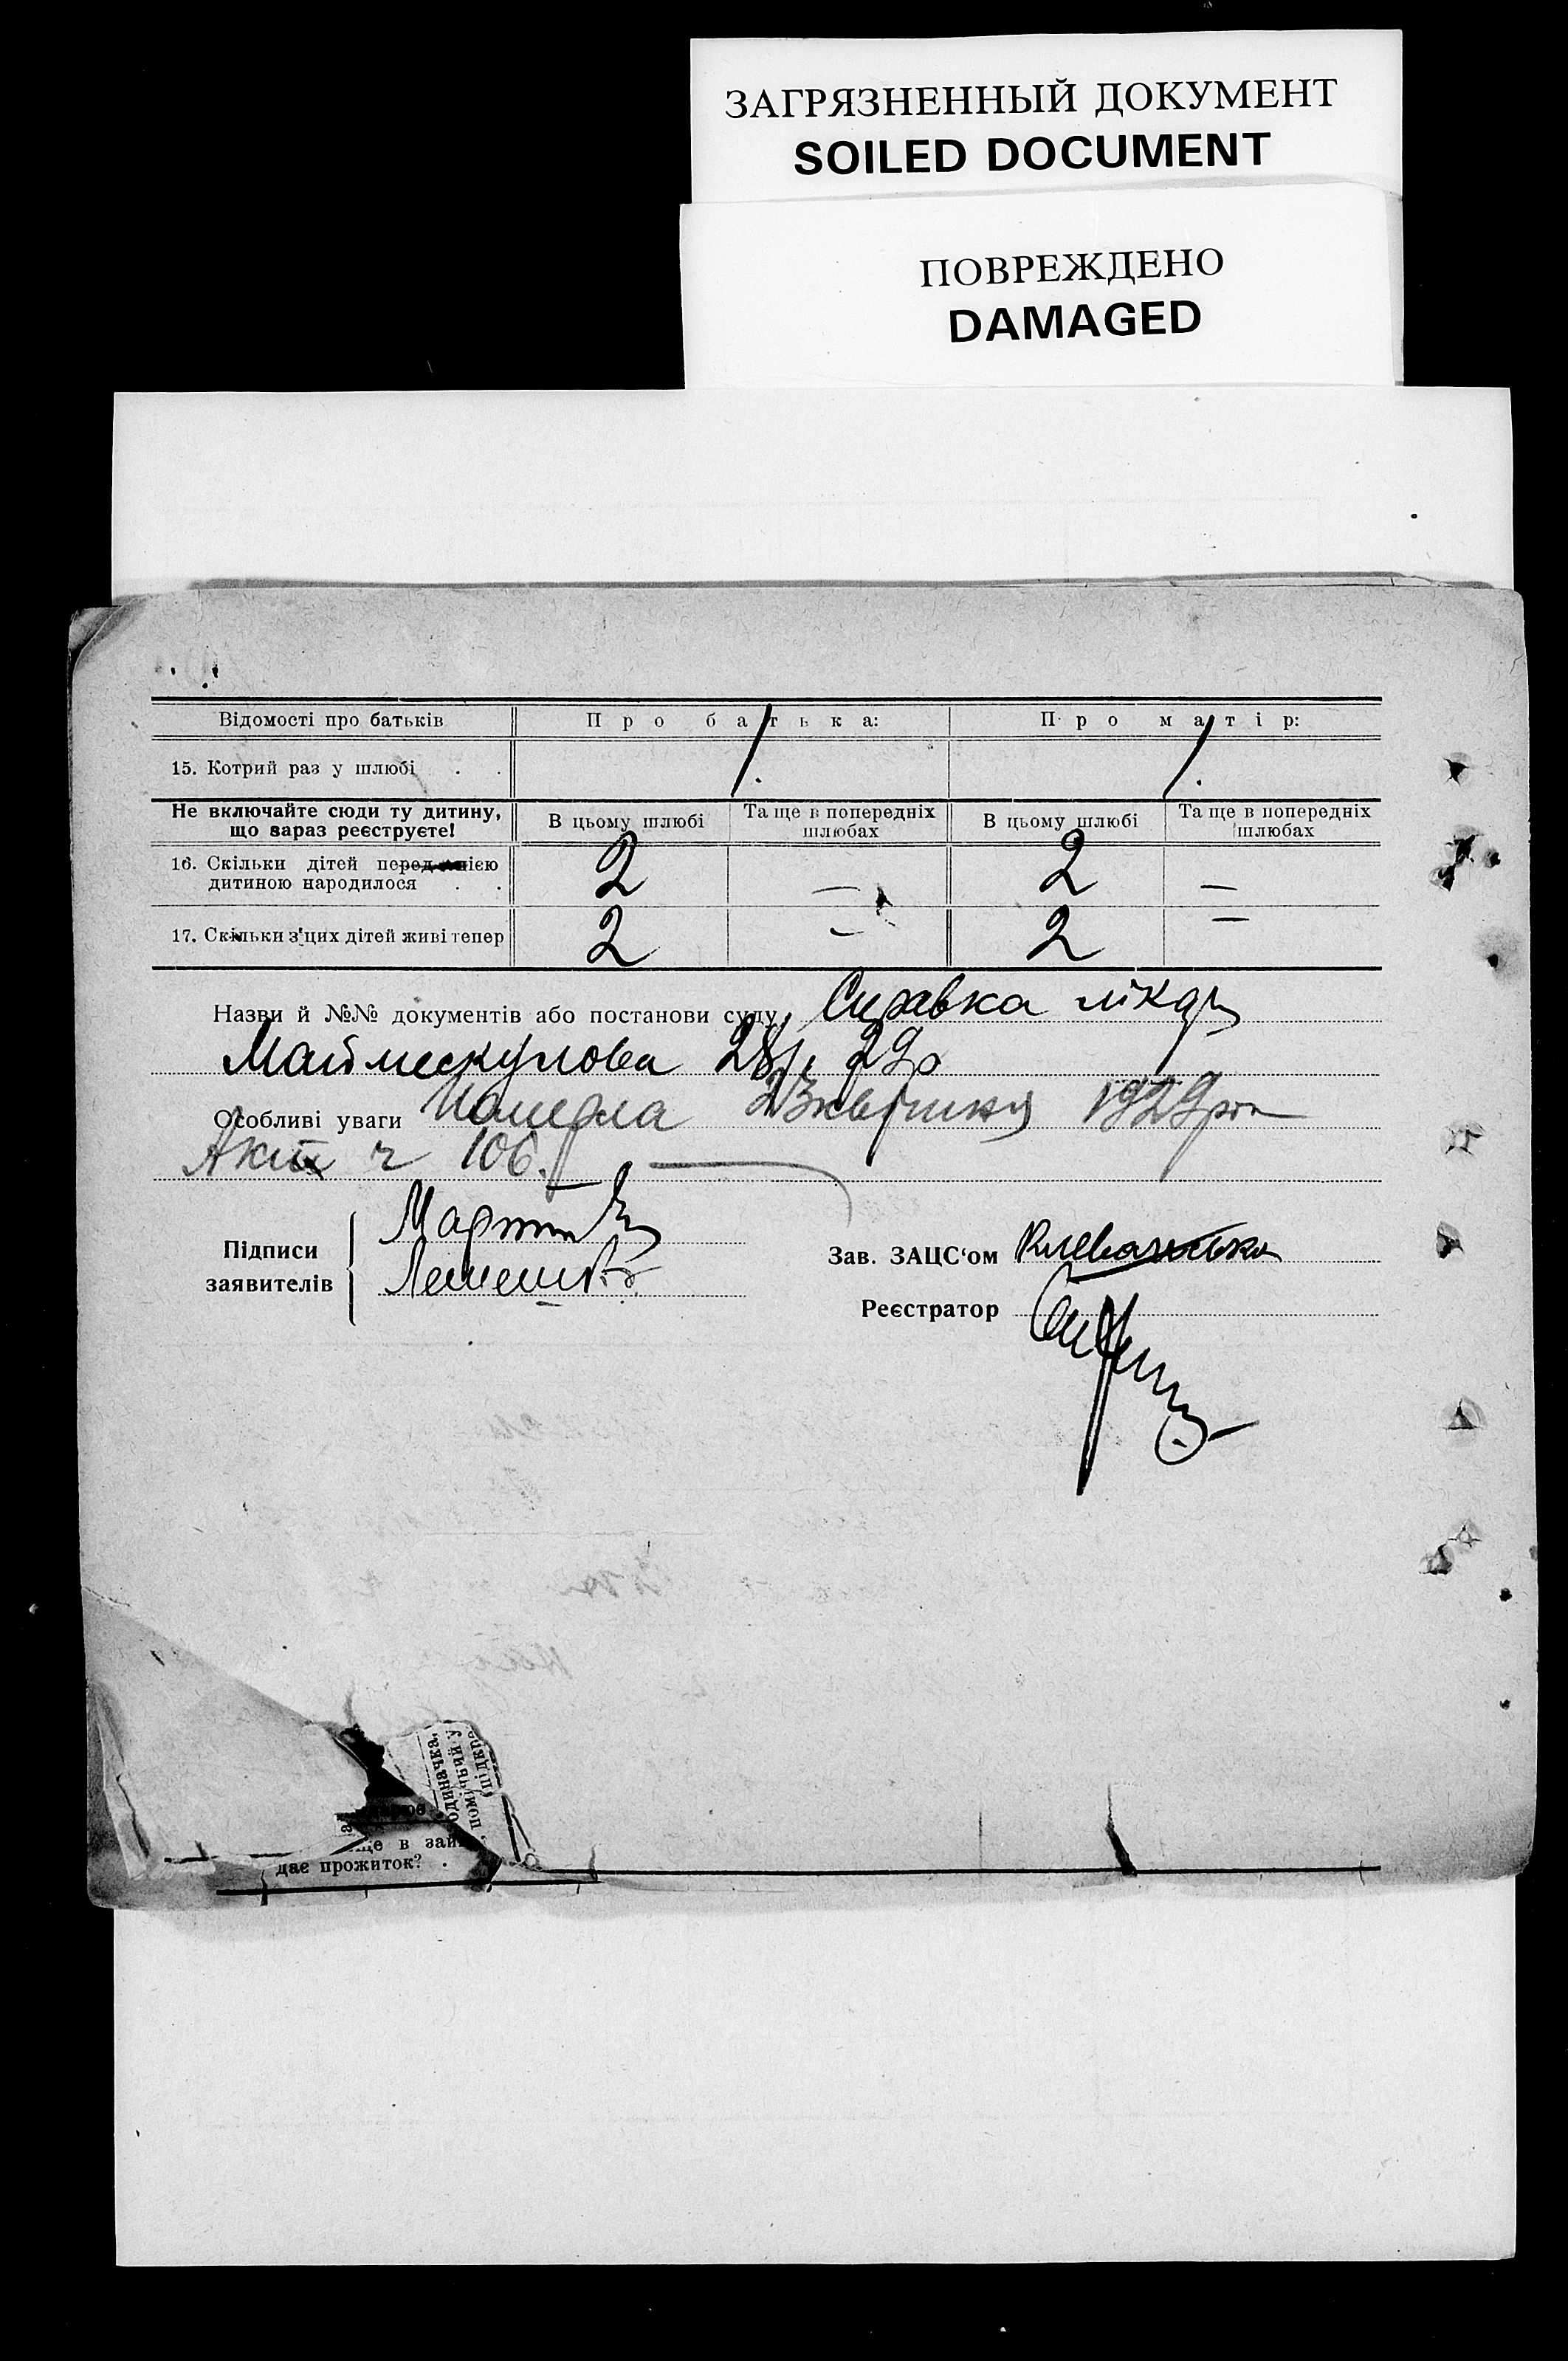 ЗАГРЯЗНЕННЫЙ ДОКУМЕНТ
SOILED DOCUMENT
ПОВРЕЖДЕНО
DAMAGED
Відомості про батьків Про батька: Про матір:
15. Котрий раз у шлюбі . . 1. 1.
Не включайте сюди ту дитину, що зараз реєструєте! В цьому шлюбі Та ще в попередніх шлюбах В цьому шлюбі Та ще в попередніх шлюбах
16. Скільки дітей перед цією дитиною народилося . . 2 — 2 —
17. Скільки з'цих дітей живі тепер 2 — 2 —
Назви й №№ документів або постанови суду Справка лікаря
28/І 29р
Особливі уваги Померла 23 квітня 1929 рок
Акт ч 106.
Підписи заявителів
Зав. ЗАЦС'ом
Реєстратор
одиначка,
помічний у
(підкре
ще в зай
дає прожиток? .